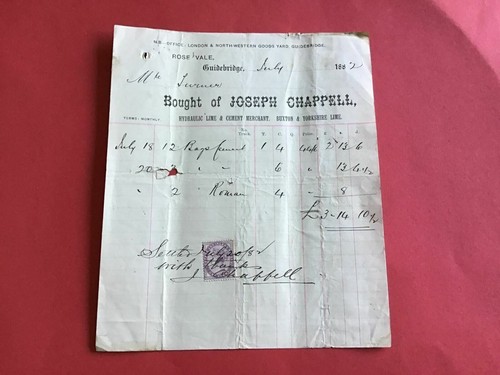 N.B.-OFFICE, LONDON & NORTH-WESTERN GOODS YARD, GUIDEBRIDGE.
ROSE VALE,
Guidebridge, July 1882
Mr Turner
Bought of JOSEPH CHAPPELL,
TERMS: MONTHLY. HYDRAULIC LIME & CEMENT MERCHANT. BUXTON & YORKSHIRE LIME.
July 18 12 Bags Cement 1 4 2 13 6
20 6 13 4½
" 2 Roman 4 8
£3-14-10½
with thanks
J Chappell